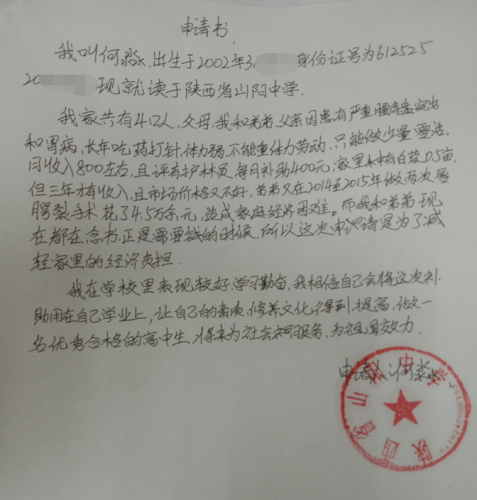 申请书
我叫何淼,出生于2002年3, 身份证号为612525
20 现就读于陕西省山阳中学.
我家共有4口人,父母、我和弟弟,父亲因患有严重腰椎盘突出
和胃病,长年吃药打针,体力弱,不能重体力劳动,只能做少量零活,
月收入800左右,且评有护林员,每月补助400元;家里种有白芨0.5亩,
但三年才有收入,且市场价格又不好,弟弟又在2014至2015年做两次唇
腭裂手术花了4.5万余元,造成家庭经济困难。而我和弟弟现
在都在念书,正是需要钱的时候,所以这次申请是为了减
轻家里的经济负担.
我在学校里表现较好,学习勤奋,我相信自己会将这次补
助用在自己学业上,让自己的素质,修养文化得到提高,做一
名优秀合格的高中生,将来为社会服务,为祖国效力.
申请人:何淼
陕西省山阳中学